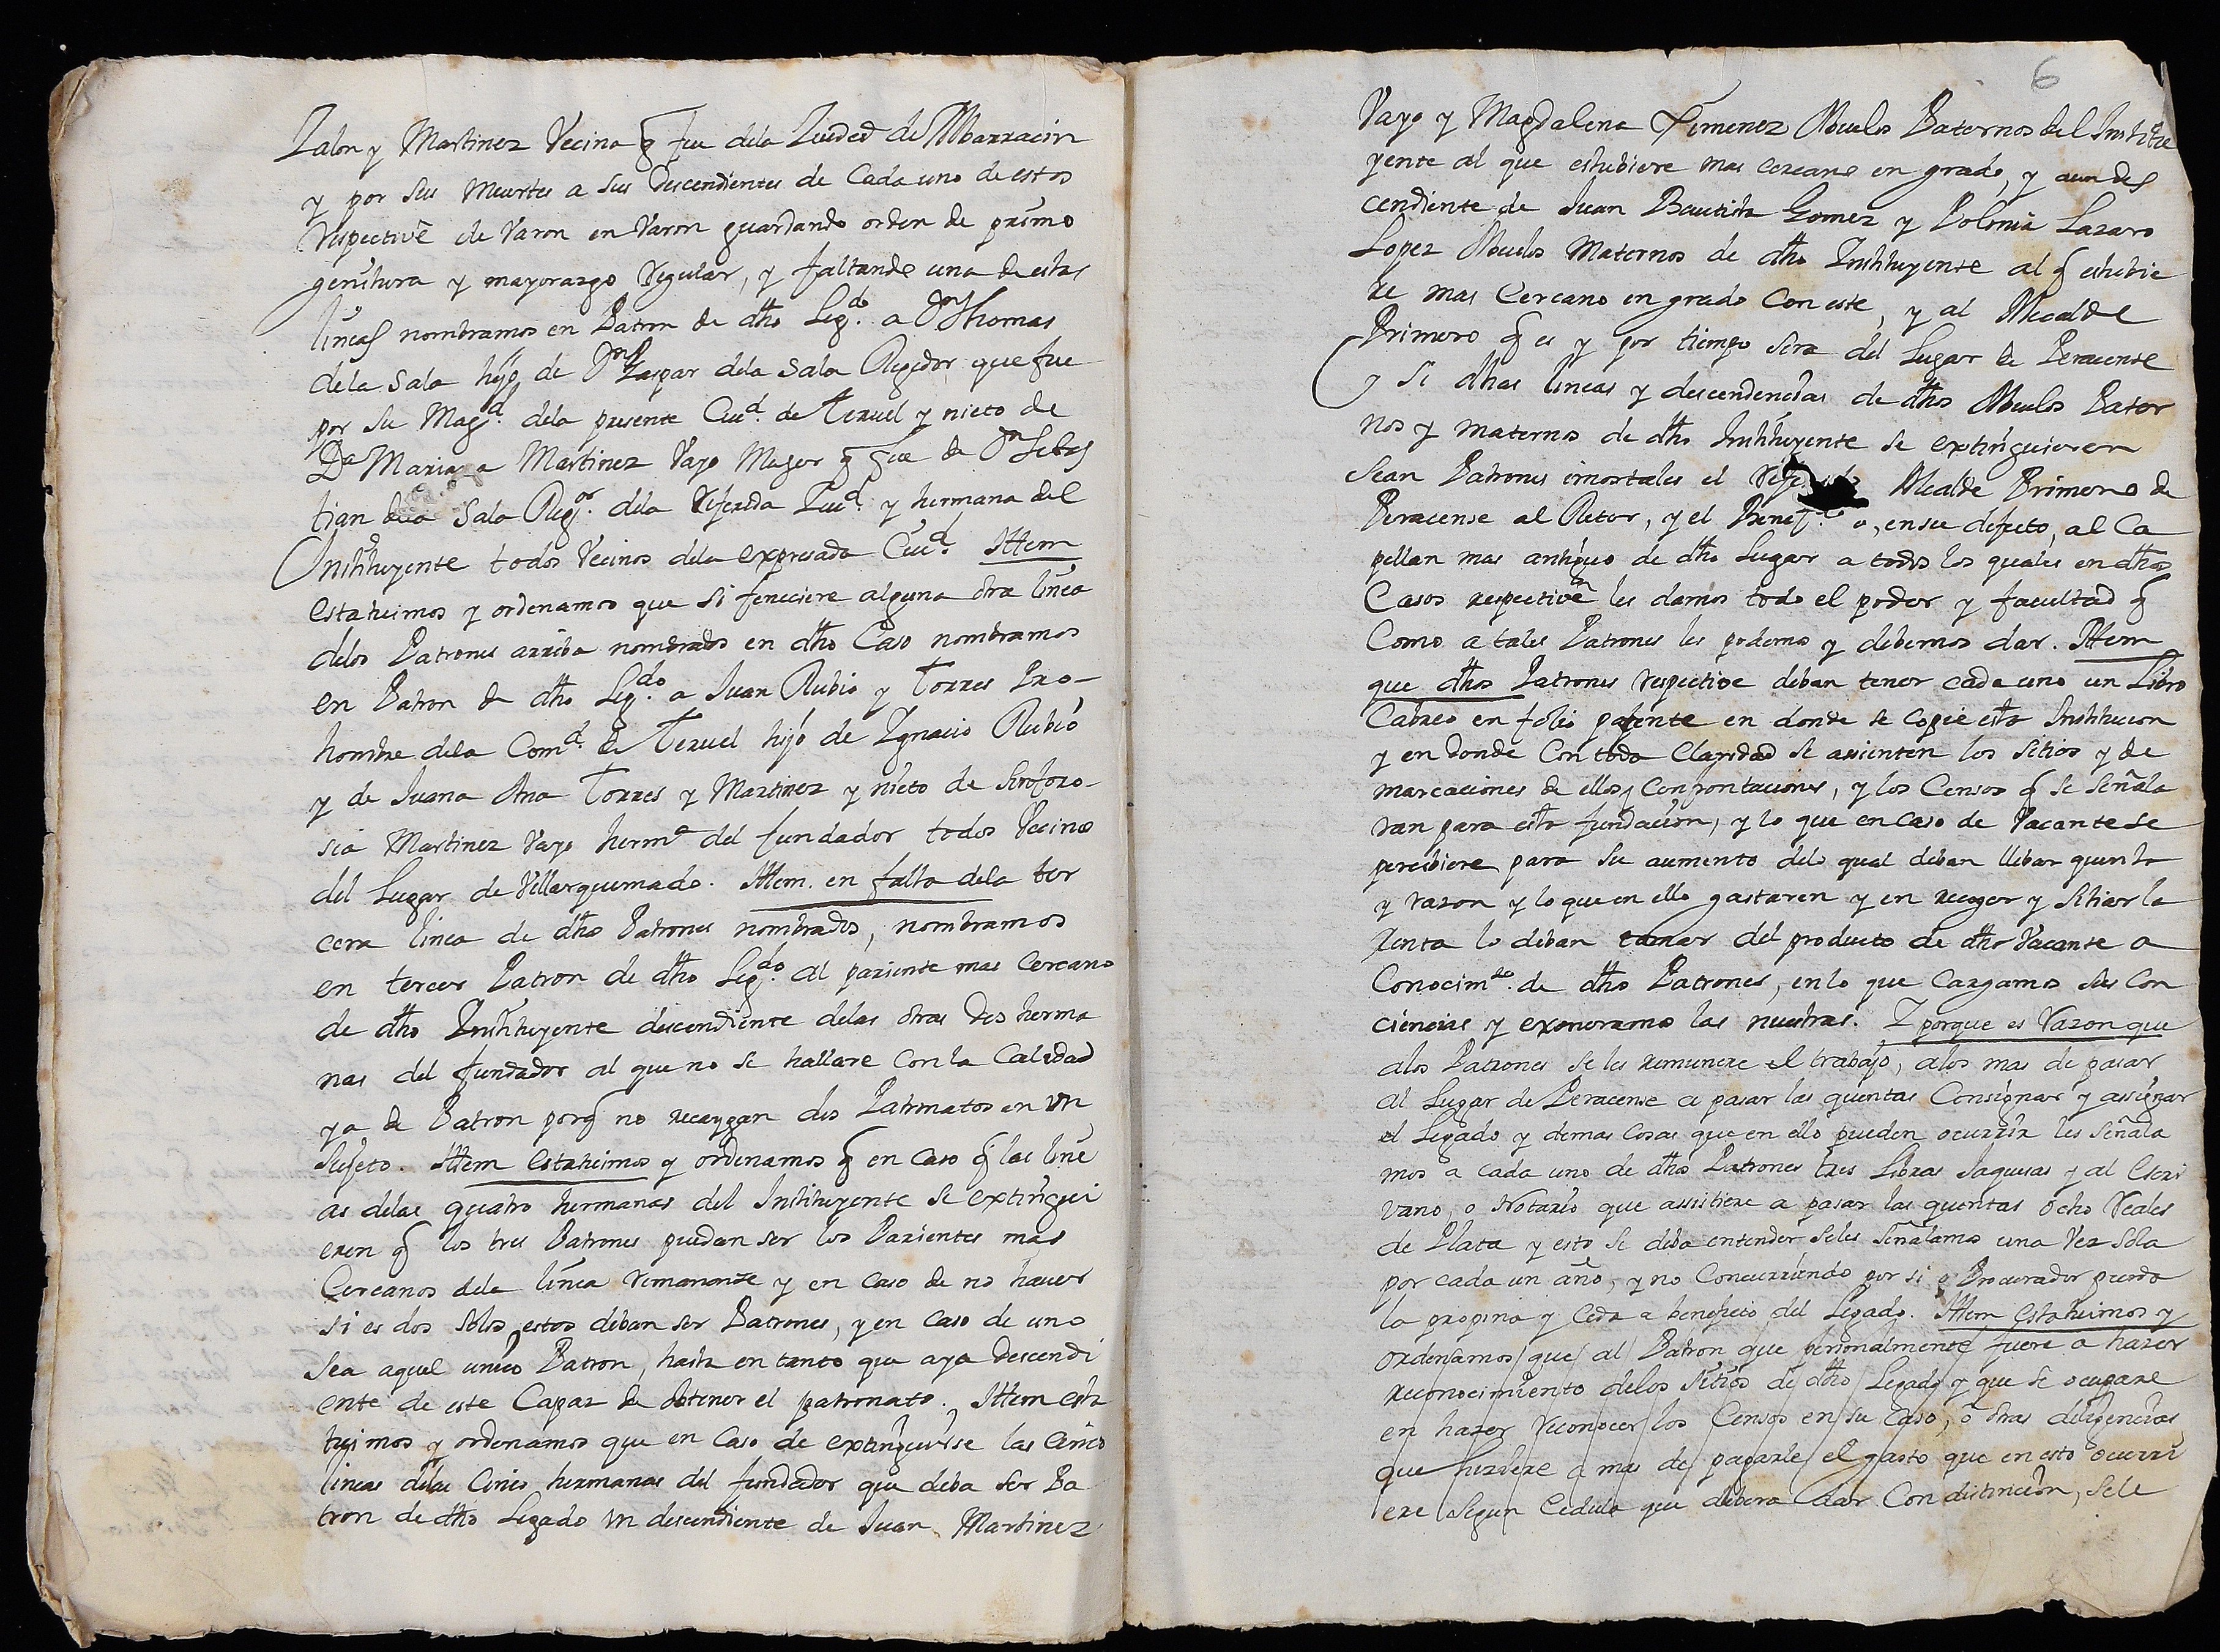 Zalon y Martinez Vecina q fue dela Ziudad de Albarracin
y por sus Muertes a sus Descendientes de Cada uno de estos
respectivê de Varon en Varon guardando orden de primo
genitura y mayorazgo regular, y faltando una de estas
lineas nombramos en Patron de dho Leg.do a Dn Thomas
dela Sala hijo de Dn Gaspar dela Sala Regidor que fue
por su Mag.d dela presente Ciud.d de Teruel y nieto de
Da Mariana Martinez Vayo Muger q fue de Dn Sebas
tian dela Sala Reg.or dela referida Ziu.d y hermana del
Instituyente todos Vecinos dela expresada Ciu.d Ittem
estatuimos y ordenamos que si feneciere alguna otra linea
delos Patrones arriba nombrados en dho Caso nombramos
en Patron de dho Leg.do a Juan Rubio y Torres Pro-
hombre dela Com.d de Teruel hijo de Ygnacio Rubio
y de Juana Ana Torres y Martinez y nieto de Sinforo-
sia Martinez Vayo herm.a del fundador todos Vecinos
del Lugar de Villarquemado. Ittem. en falta dela ter
cera linea de dhos Patrones nombrados, nombramos
en tercer Patron de dho Leg.do al pariente mas Cercano
de dho Instituyente descendiente delas otras dos herma
nas del fundador al que no se hallare con la Calidad
ya de Patron porq no recaygan dos Patronatos en Vn
Sujeto. Ittem estatuimos y ordenamos q en caso q las line
as delas quatro hermanas del Instituyente se extingui
eren q los tres Patrones puedan ser los Parientes mas
Cercanos dela linea remanente y en caso de no haver
si es dos solos estos deban ser Patrones, y en caso de uno
sea aquel unico Patron, hasta en tanto que aya descendi
ente de este Capaz de obtener el patronato. Ittem esta
tuimos y ordenamos que en Caso de extinguirse las Cinco
lineas delas Cinco hermanas del fundador que deba ser Pa
tron de dho Legado Vn descendiente de Juan Martinez
6
Vayo y Magdalena Ximenez Abuelos Paternos del Institu
yente al que estubiere mas cercano en grado, y aun des
cendiente de Juan Bautista Gomez y Polonia Lazaro
Lopez Abuelos Maternos de dho Instituyente al q estubie
re mas Cercano en grado con este, y al Alcalde
Primero q es y por tiempo sera del Lugar de Peracense
y si dhas lineas y descendencias de dhos Abuelos Pater
nos y maternos de dho Instituyente se extinguieren
Sean Patrones imortales el Alcalde Primero de
Peracense al Retor, y el Benef.do o, en su defecto, al Ca
pellan mas antiguo de dho Lugar a todos los quales en dhos
Casos respectivê les damos todo el poder y facultad q
Como a tales Patrones les podemos y debemos dar. Ittem
que dhos Patrones respective deban tener cada uno un Libro
Cabreo en folio patente en donde se copie esta Institucion
y en donde Con toda Claridad se assienten los sitios y de
marcaciones de ellos, Confrontaciones, y los Censos q se señala
ran para esta fundacion, y lo que en caso de Vacante se
percibiere para su aumento delo qual deban llebar quenta
y razon y lo que en ello gastaren y en recoger y sitiar la
renta lo deban tomar del producto de dha Vacante a
Conocim.to de dhos Patrones, en lo que Cargamos sus Con
ciencias y exoneramos las nuestras. Y porque es razon que
alos Patrones se les remunere el trabajo, alos mas de pasar
al Lugar de Peracense a pasar las quentas Consignar y assignar
el Legado y demas Cosas que en ello pueden ocurrir les señala
mos a cada uno de dhos Patrones tres Libras Jaquesas y al Escri
vano, o Notario que assistiere a pasar las quentas ocho reales
de Plata y esto se deba entender seles señalamos una Vez sola
por cada un año, y no Concurriendo por si o Procurador pierda
la propina y Ceda a beneficio del Legado. Ittem estatuimos y
ordenamos que al Patron que personalmente fuere a hazer
reconocimiento delos Sitios de dho Legado y que se ocupare
en hazer reconocer los Censos en su Caso, o otras diligencias
que hiziere a mas de pagarle el gasto que en esto ocurri
ere segun Cedula que debera dar Con distincion, sele